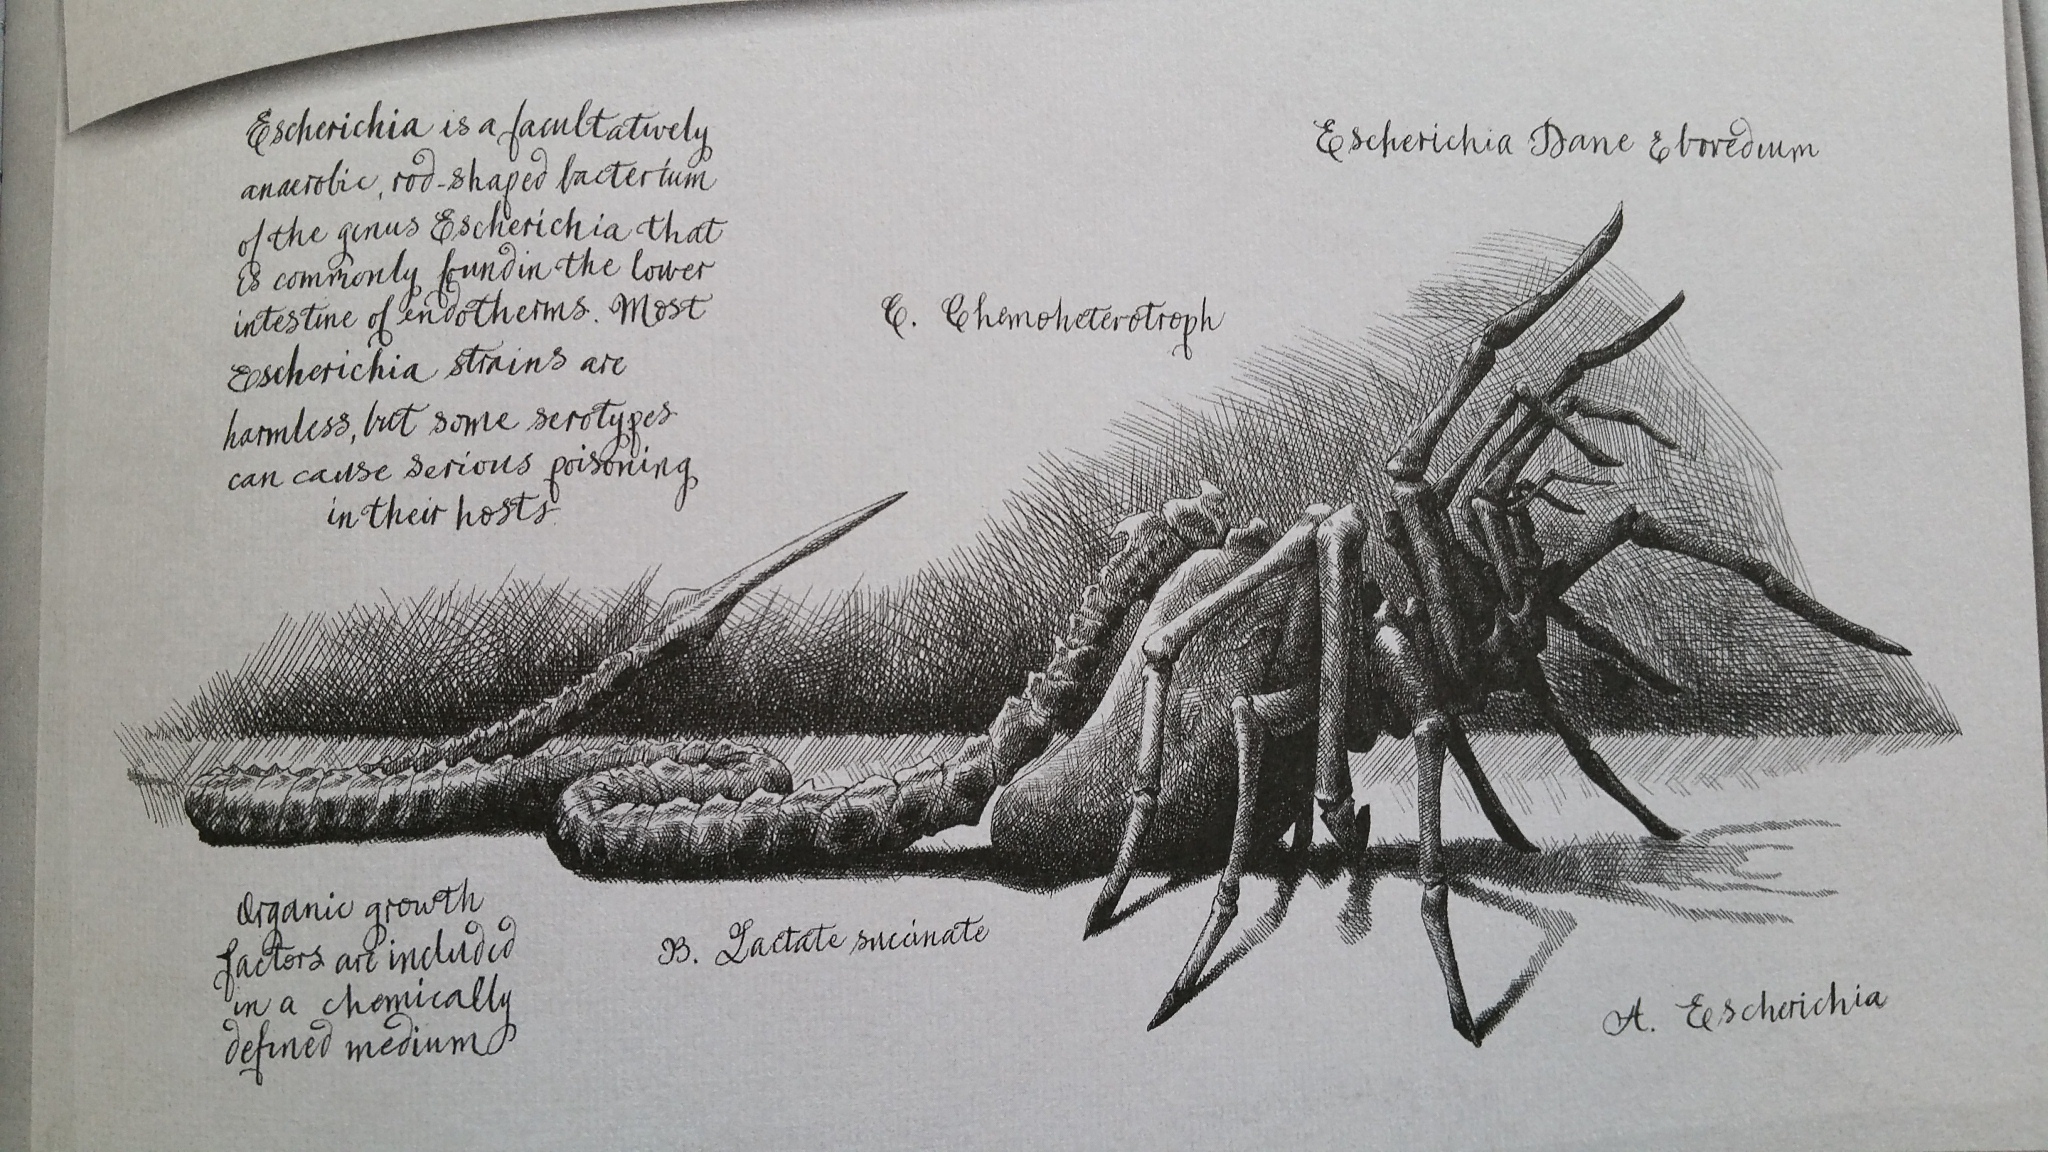 Escherichia is a facultatively
anaerobic, rod-shaped bacterium
of the genus Escherichia that
is commonly fundin the lower
intestine of endotherms. Most
Escherichia strains are
harmless, but some serotypes
can cause serious poisoning
in their hosts.
Escherichia Dane Eboredium
C. Chemoheterotroph
Organic growth
factors are included
in a chemically
defined medium
B. Lactate succinate
A. Escherichia